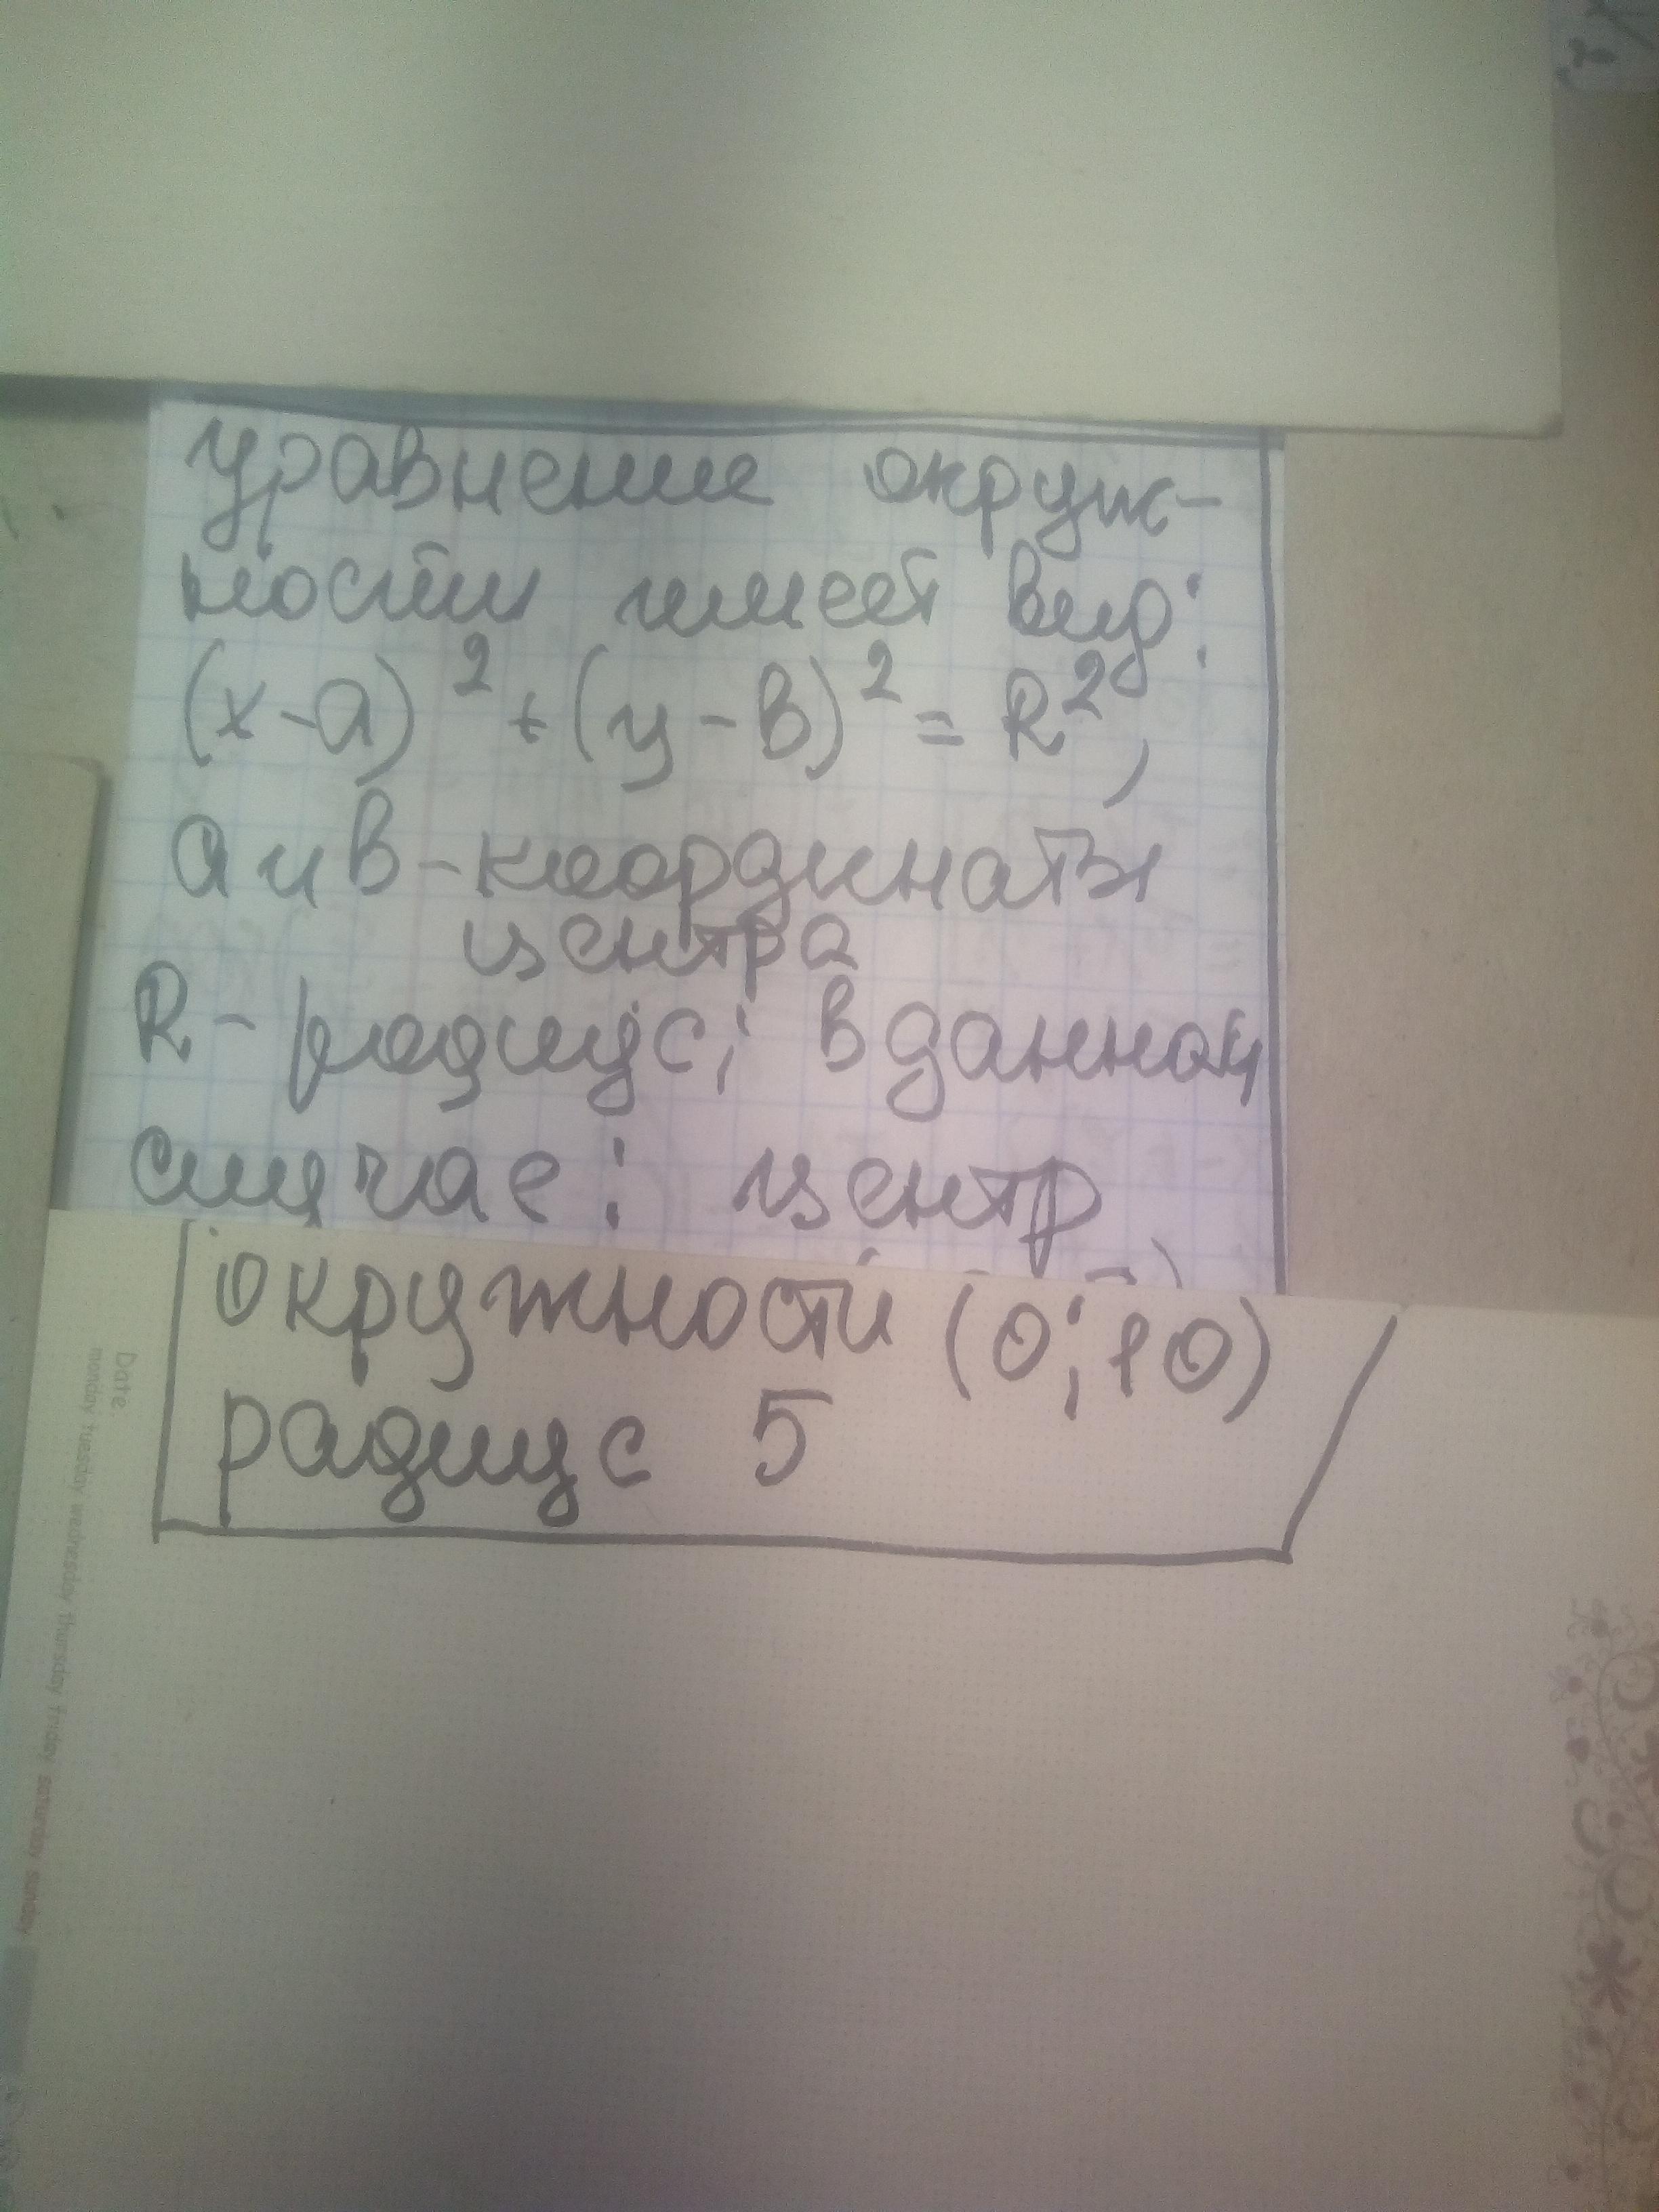 уравнение окруж-
ности имеет вид:
(x-a)² + (y-в)² = R²,
а и в - координаты
центра
R - радиус; в данном
случае: центр
окружности (0; 10)
радиус 5
Date
monday tuesday wednesday thursday friday saturday sunday